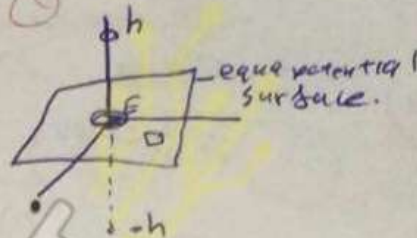 h
equa potential
surface.
E
-h